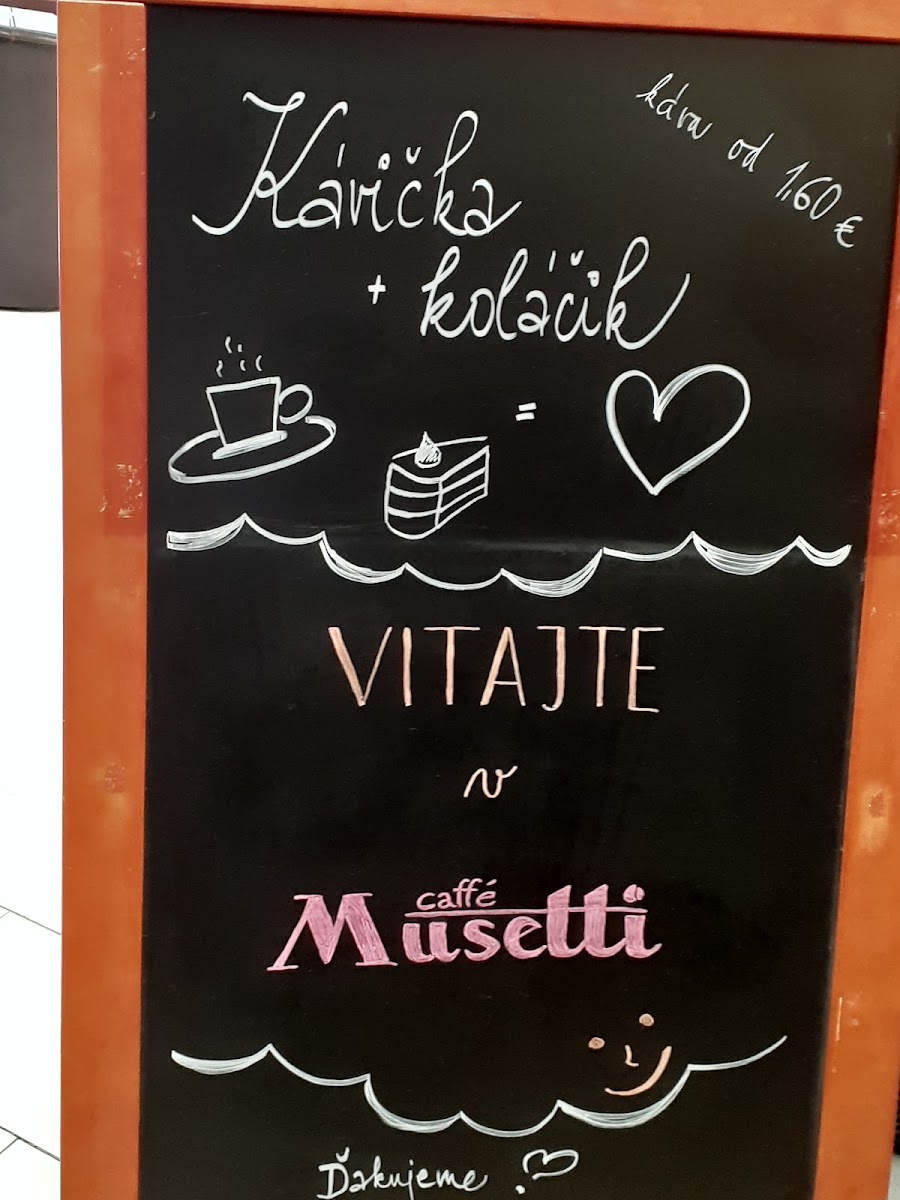 káva od 1,60 €
Kávička
+ koláčik
=
VITAJTE
v
caffé
Musetti
Ďakujeme